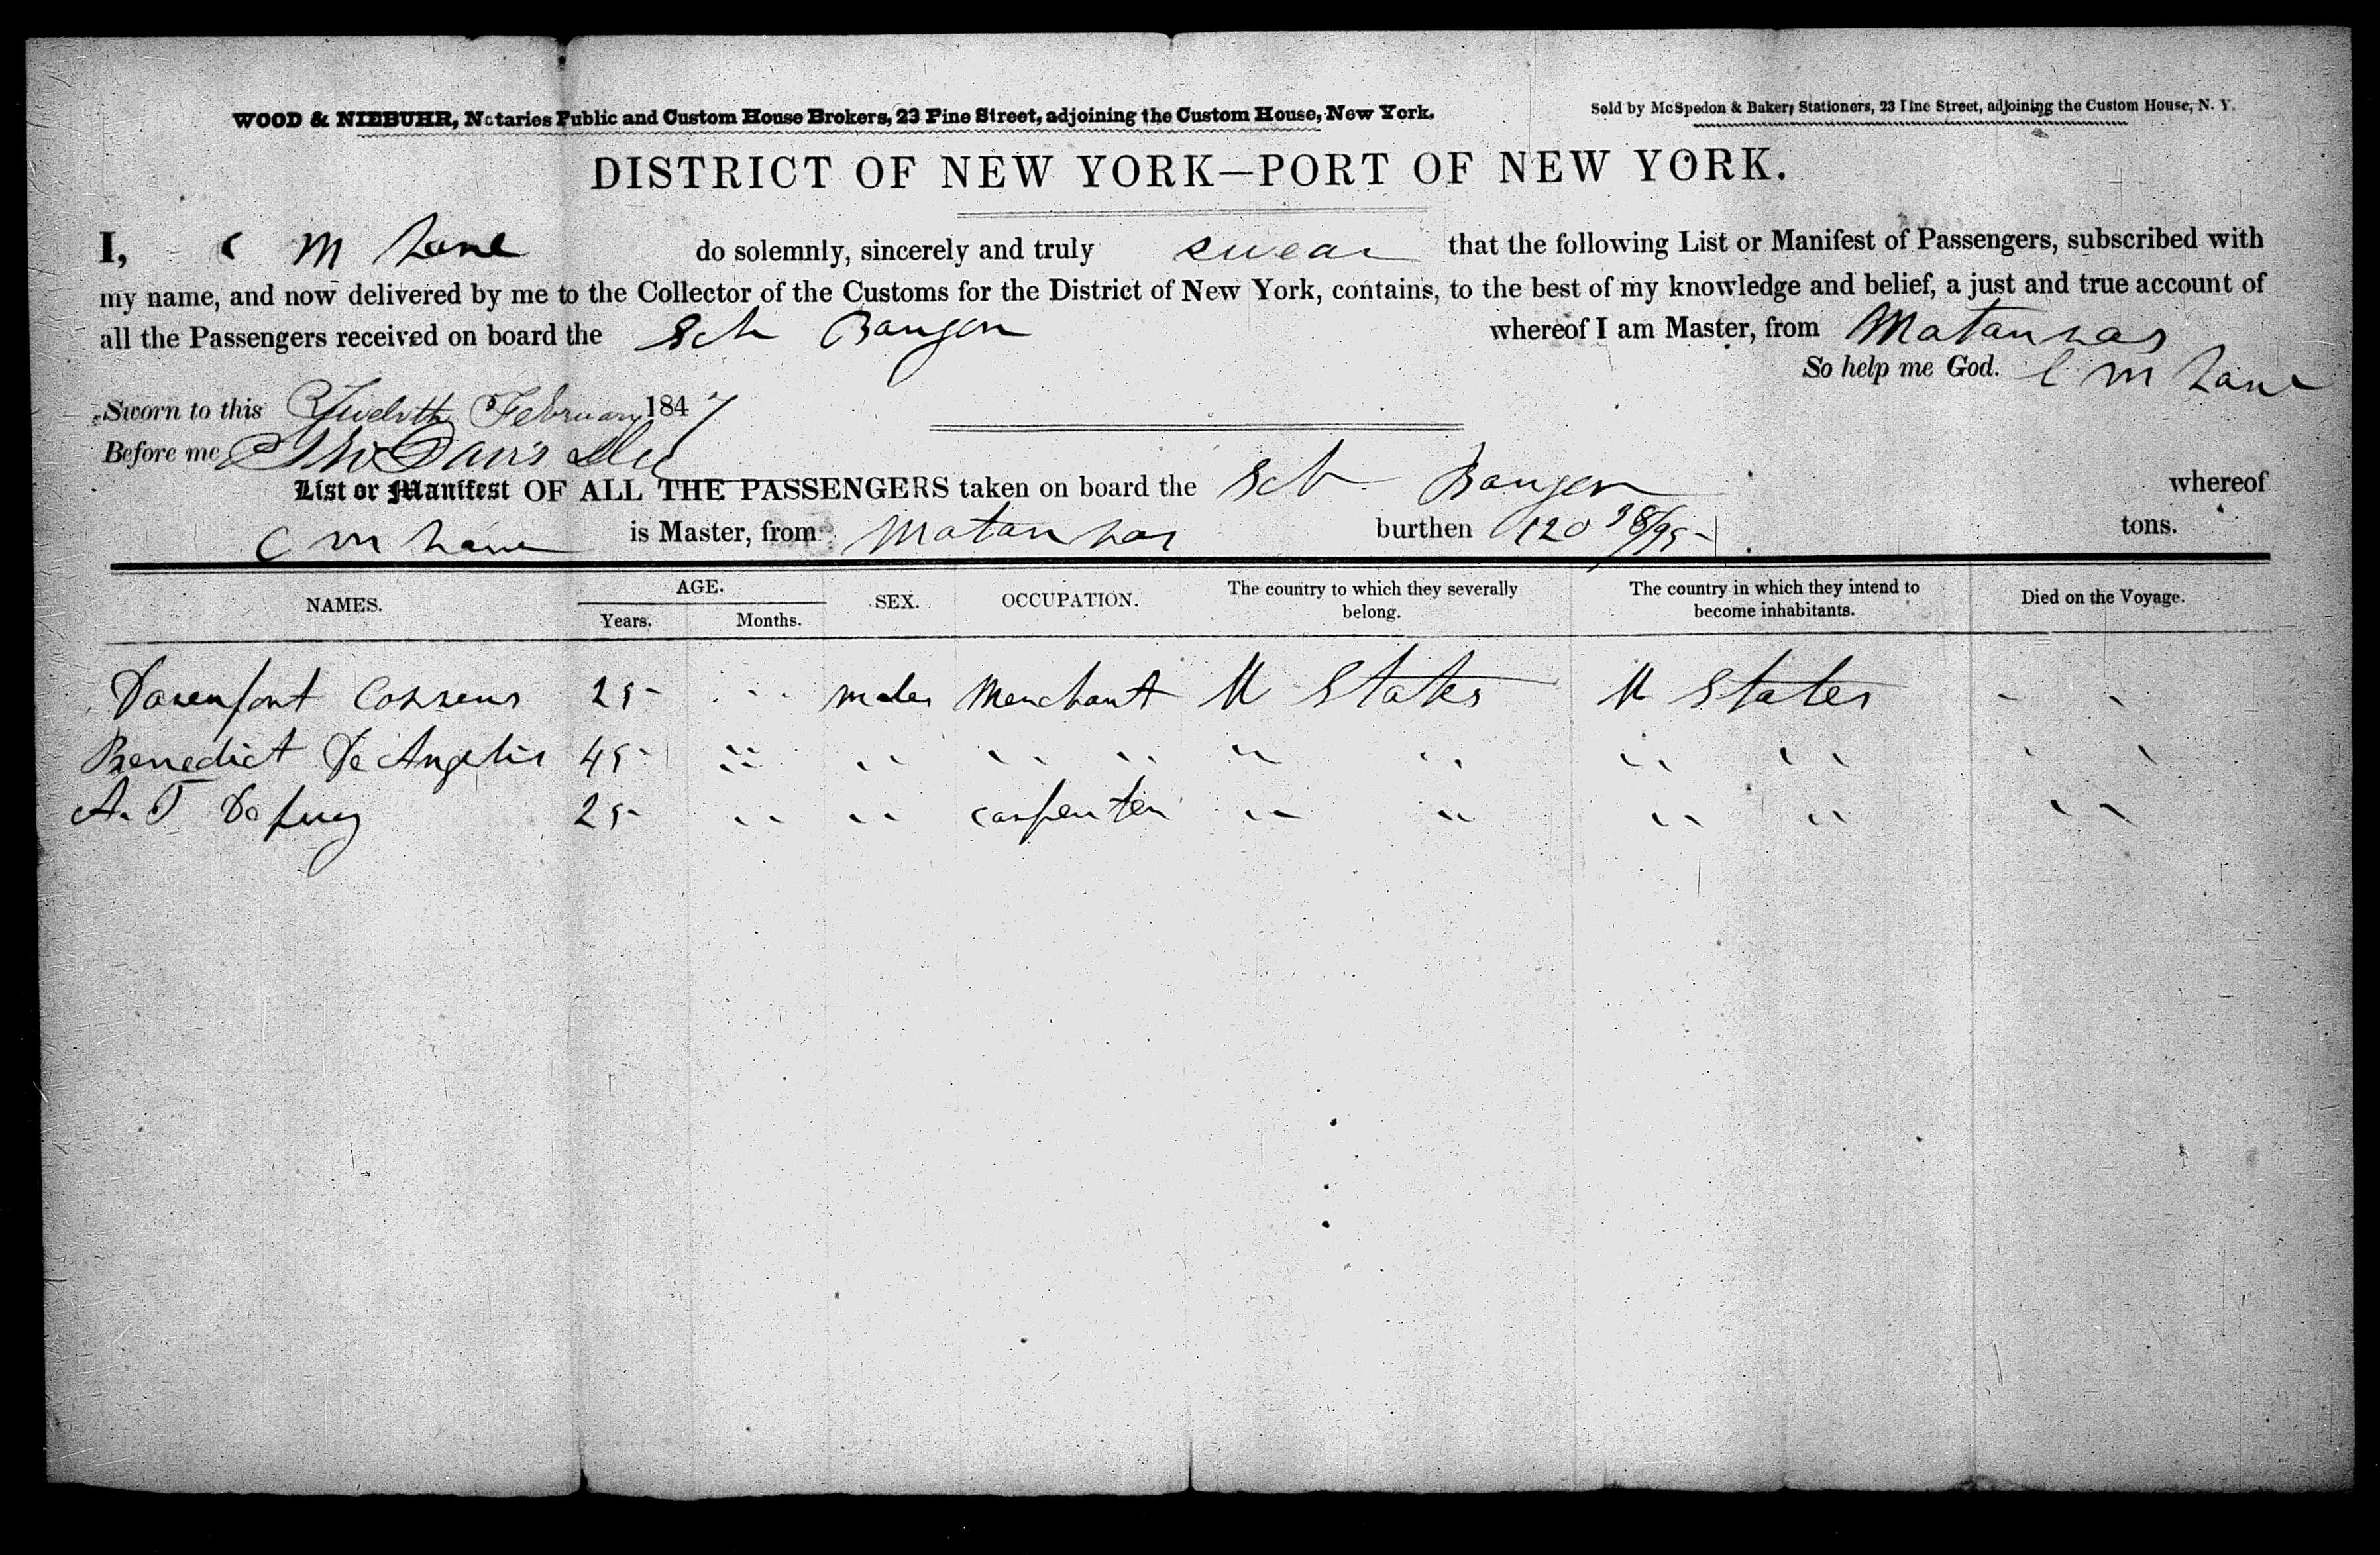 WOOD & NIEBUHR, Notaries Public and Custom House Brokers, 23 Pine Street, adjoining the Custom House, New York.
Sold by McSpedon & Baker, Stationers, 23 Pine Street, adjoining the Custom House, N. Y.
DISTRICT OF NEW YORK—PORT OF NEW YORK.
I, C M Lane do solemnly, sincerely and truly swear that the following List or Manifest of Passengers, subscribed with
my name, and now delivered by me to the Collector of the Customs for the District of New York, contains, to the best of my knowledge and belief, a just and true account of
all the Passengers received on board the Sch Bangor whereof I am Master, from Matanzas
So help me God. C M Lane
Sworn to this Twelvth February 1847
Before me Davis
List or Manifest OF ALL THE PASSENGERS taken on board the Sch Bangor whereof
C M Lane is Master, from Matanzas burthen 120 38/95 tons.
NAMES. AGE. SEX. OCCUPATION. The country to which they severally belong. The country in which they intend to become inhabitants. Died on the Voyage.
Years. Months.
Davenport 25 males Merchant U States U States
Benedict De Angelis 45 " " " " " "
A. T 25 " " carpenter " " " "